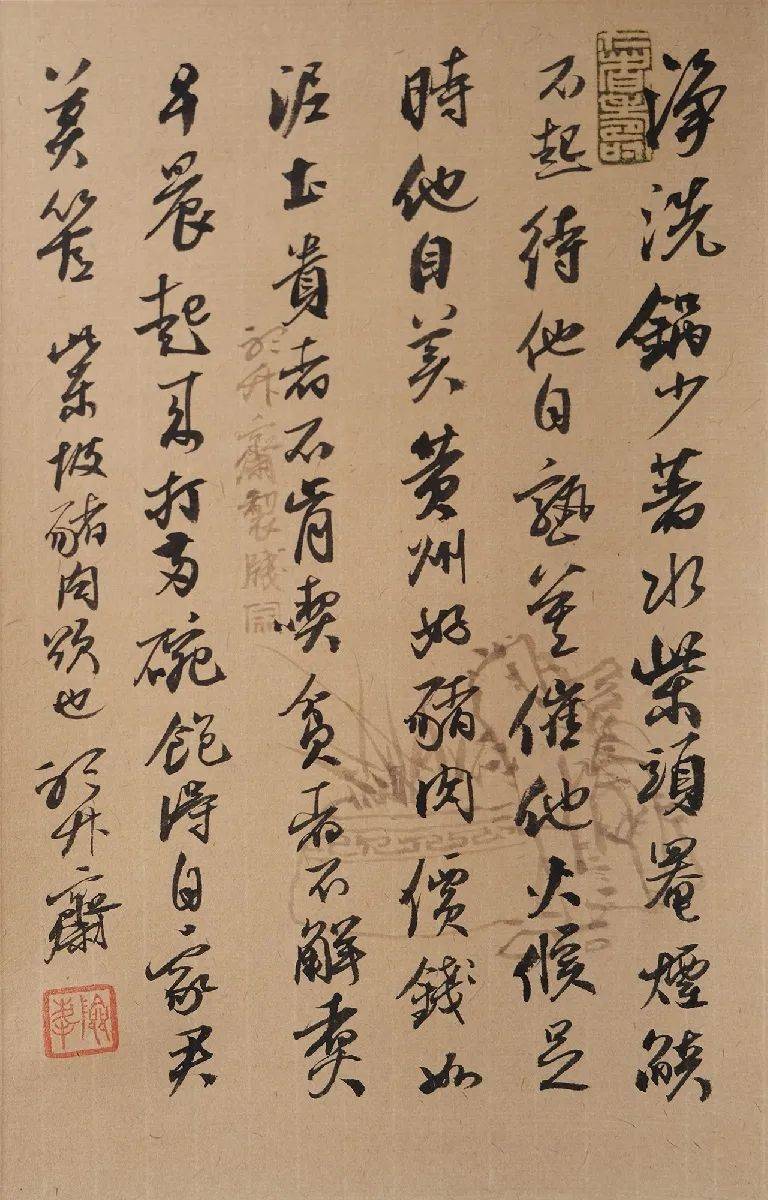 淨洗鍋少著水柴頭罨煙燄
不起待他自熟莫催他火候足
時他自美黃州好豬肉價錢如
泥土貴者不肯喫貧者不解煮
早晨起来打兩碗飽得自家君
莫管 柴坡豬肉頌也 於升齋
於升齋製牋